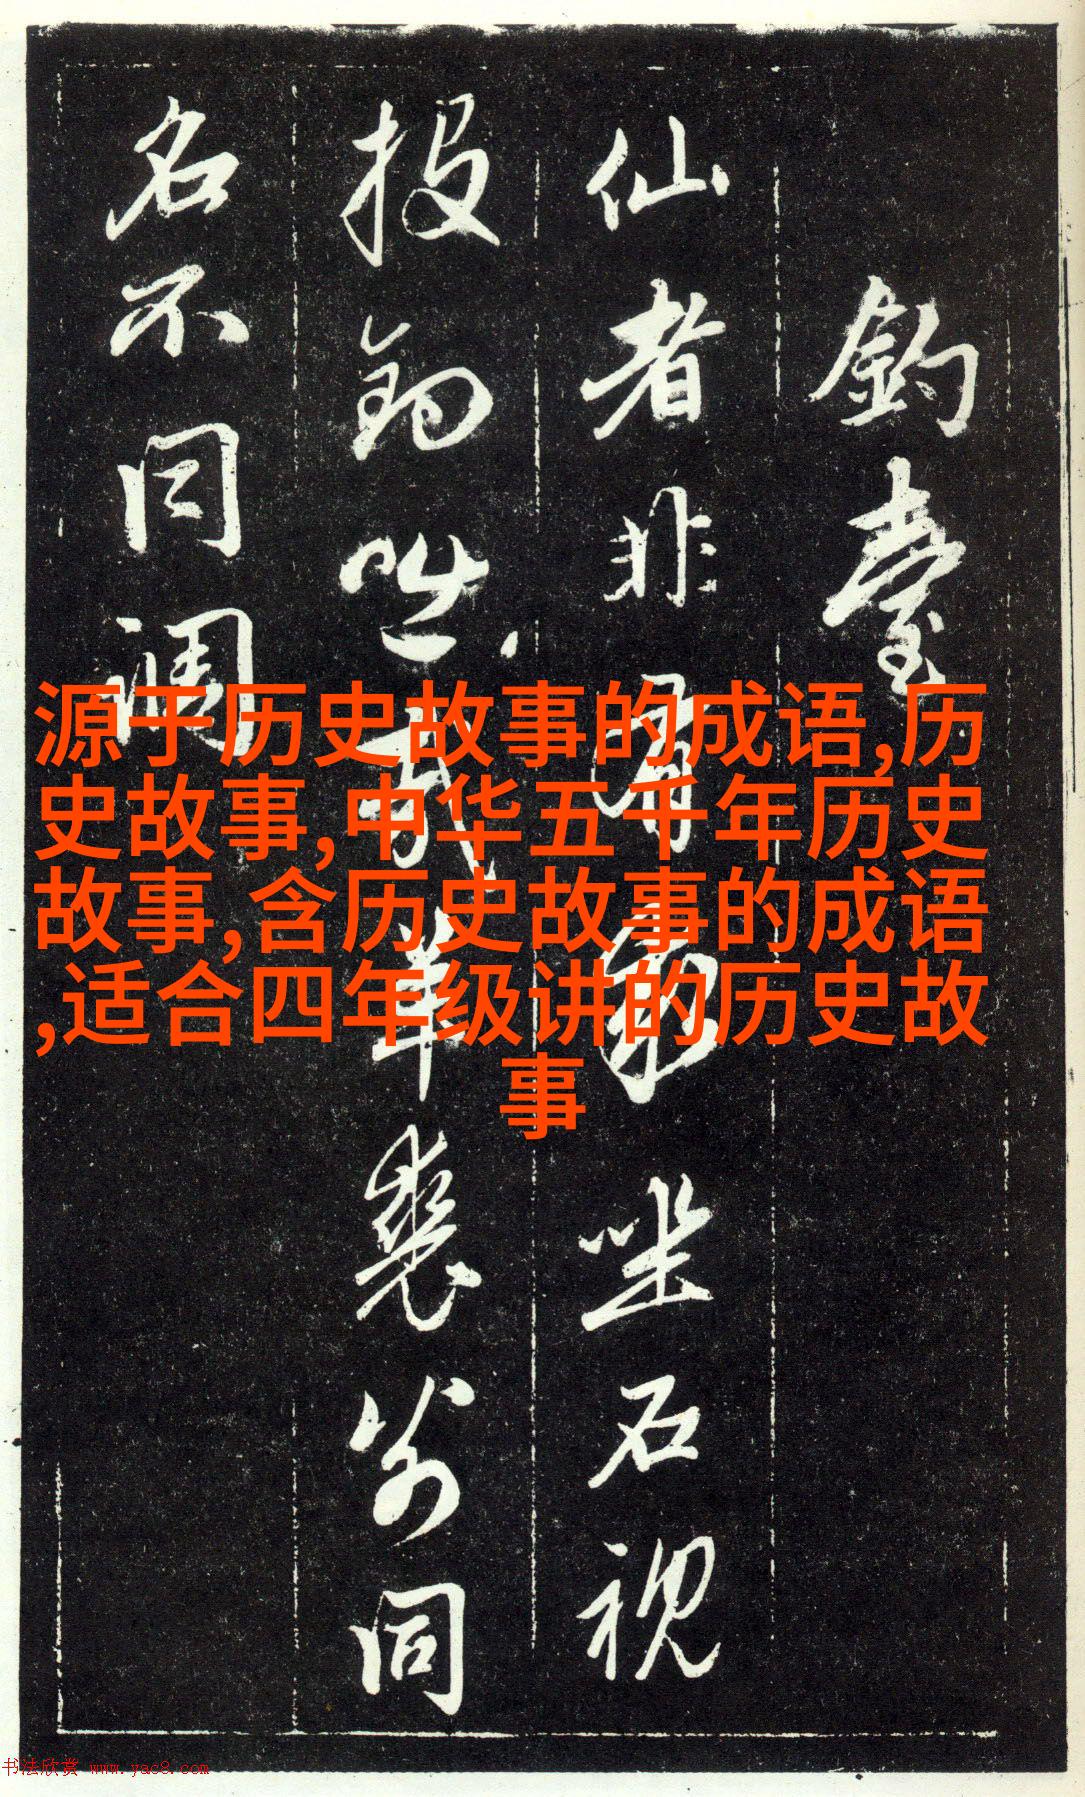 釣臺
仙者非有 坐石視
投釣咄哉羊裘 同
名不同調
源于历史故事的成语,历
史故事,中华五千年历史
故事,含历史故事的成语
,适合四年级讲的历史故
事
书法欣赏 www.yac8.com